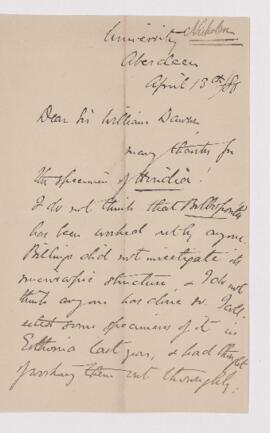 Nicholson
University
Aberdeen
April 13th/88
Dear Sir William Dawson
many thanks for
the specimen of
I do not think that
has been worked out by anyone.
Billings did not investigate its
microscopic structure, & I do not
think anyone has done so. I coll-
ected some specimens of it in
Esthonia last year, & had thought
of working them out thoroughly.